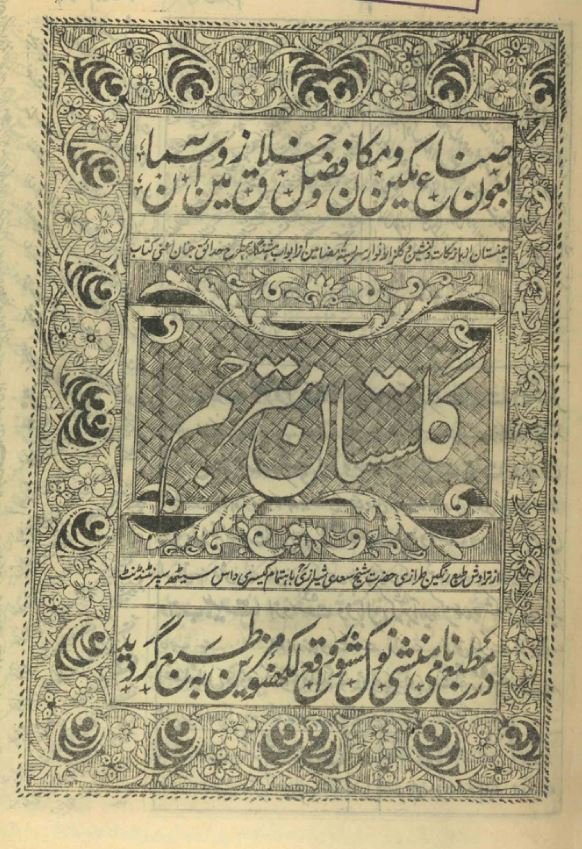 بعون صناع مکین و مکان و فضل خلاق زمین و آسمان
چمنستان ازہار نکات دلنشین و گلزار انوار سربستہ مضامین از ابواب ہشتگانہ بطرح حدائق جنان اعنی کتاب
گلستان مترجم
از تراوش طبع رنگین طرازی حضرت شیخ سعدی شیرازیؒ باہتمام کیسری داس سیٹھ سپرنٹنڈنٹ
در مطبع نامی منشی نولکشور واقع لکھنؤ مزین بہ طبع گردید